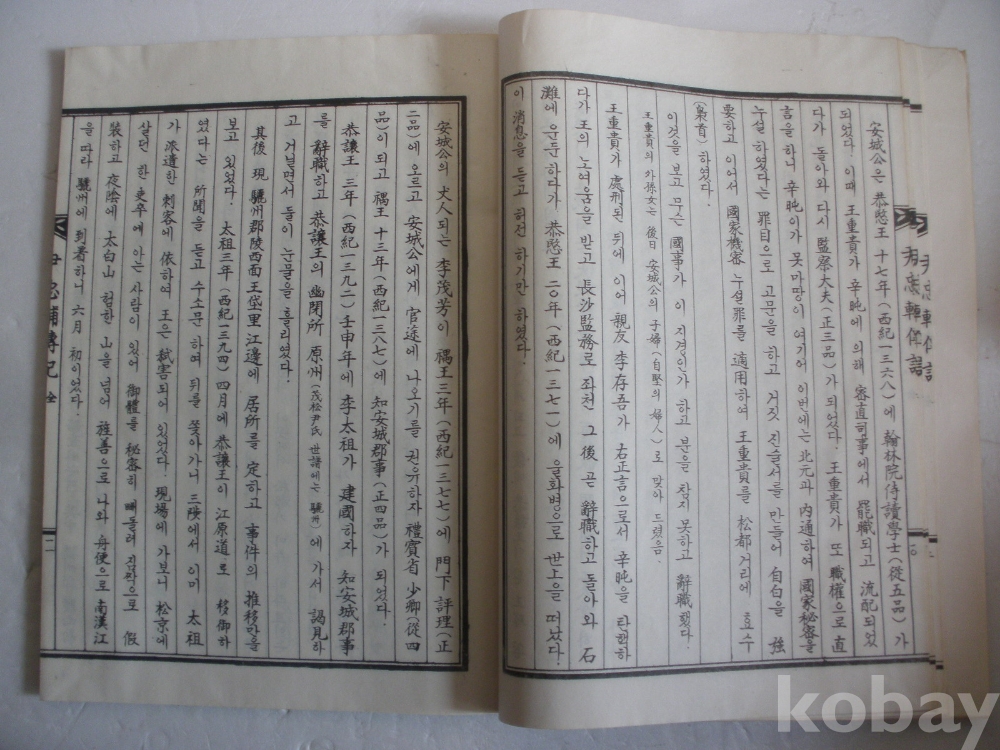 安城公은 恭愍王 十七年(西紀一三六八)에 翰林院侍讀學士(從五品)가
되었다. 이때 王重貴가 辛旽에 의해 審直司事에서 罷職되고 流配되었
다가 돌아와 다시 監察大夫(正三品)가 되었다. 王重貴가 또 職權으로 直
言을 하니 辛旽이가 못마땅이 여기어 이번에는 北元과 內通하여 國家秘密을
누설하였다는 罪目으로 고문을 하고 거짓 진술서를 만들어 自白을 强
要하고 이어서 國家機密 누설罪를 適用하여 王重貴를 松都거리에 효수
(梟首)하였다.
이것을 보고 무슨 國事가 이 지경인가 하고 분을 참지 못하고 辭職했다.
王重貴의 外孫女는 後日 安城公의 子婦(自堅의 婦人)로 맞아 드렸음.
王重貴가 處刑된 뒤에 이어 親友 李存吾가 右正言으로서 辛旽을 탄핵하
다가 王의 노여움을 받고 長沙監務로 좌천 그後 곧 辭職하고 돌아와 石
灘에 은둔하다가 恭愍王 二○年(西紀一三七一)에 울화병으로 世上을 떠났다.
이 消息을 듣고 허전하기만 하였다.
安城公의 丈人되는 李茂芳이 禑王三年(西紀一三七七)에 門下評理(正
二品)에 오르고 安城公에게 官途에 나오기를 권유하자 禮賓省少卿(從四
品)이 되고 禑王 十三年(西紀一三八七)에 知安城郡事(正四品)가 되었다.
恭讓王 三年(西紀一三九二)壬申年에 李太祖가 建國하자 知安城郡事
를 辭職하고 恭讓王의 幽閉所 原州(茂松尹氏 世譜에는 驪州)에 가서 謁見하
고 거닐면서 들이 눈물을 흘리였다.
其後 現 驪州郡陵西面王垈里江邊에 居所를 定하고 事件의 推移만을
보고 있었다. 太祖三年(西紀一三九四)四月에 恭讓王이 江原道로 移御하
였다는 所聞을 듣고 수소문하여 뒤를 쫓아가니 三陟에서 이미 太祖
가 派遣한 刺客에 依하여 王은 弑害되어 있었다. 現場에 가보니 松京에
살던 한 吏卒에 아는 사람이 있어 御體를 秘密히 빼돌려 짐짝으로 假
裝하고 夜陰에 太白山 험한 山을 넘어 旌善으로 나와 舟便으로 南漢江
을 따라 驪州에 到着하니 六月 初이었다.
kobay